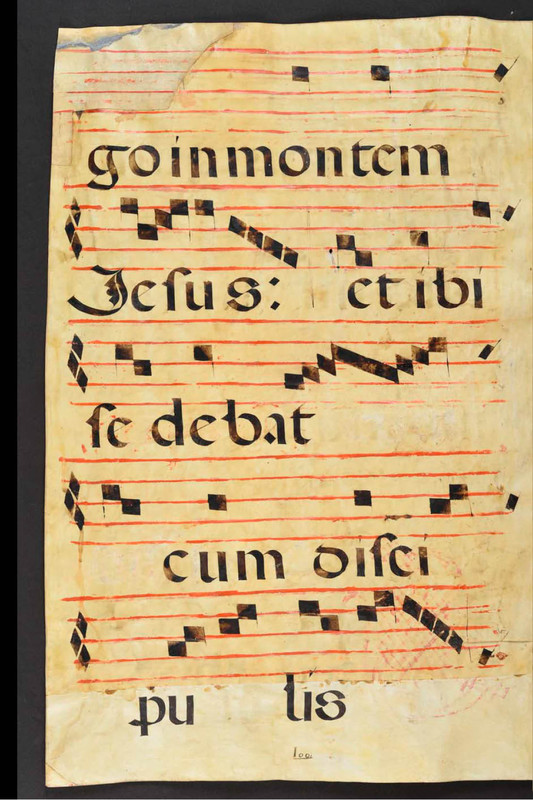 go in montem
Jesus: et ibi
se debat
cum disci
pu lis
100.